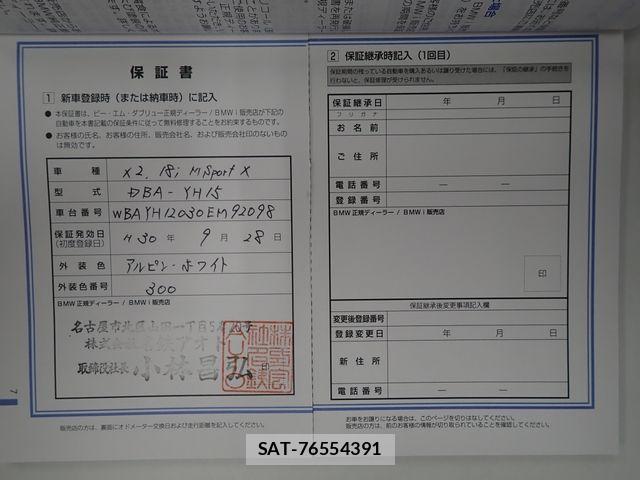 保証書
1 新車登録時（または納車時）に記入
● 本保証書は、ビー・エム・ダブリュー正規ディーラー / BMW i 販売店が下記の
自動車を本書記載の保証条件に従って無料修理することをお約束するものです。
● お客様の氏名、お客様の住所、販売会社名、および販売会社印のないもの
は無効です。
車種 X2. 18i MSport X
型式 DBA-YH15
車台番号 WBAYH12030EM92098
保証発効日
(初度登録日) H30年 9月 28日
外装色 アルピン・ホワイト
外装色番号 300
BMW正規ディーラー / BMW i 販売店
名古屋市北区山田一丁目
株式会社
取締役社長 小林昌弘 印
販売店の方は、裏面にオドメーター交換日および走行距離を記入してください。
7
2 保証継承時記入（1回目）
保証期間の残っている自動車を購入あるいは譲り受けた場合には、「保証の継承」の手続きを
行わないと、保証修理が受けられません。
保証継承日 年 月 日
フリガナ
お名前
ご住所
電話番号 ― ―
登録番号
BMW正規ディーラー / BMW i 販売店
印
保証継承後変更事項記入欄
変更後登録番号
登録変更日 年 月 日
新住所
電話番号 ― ―
お車をお譲りになる場合は、このページを切りはなしてください。
販売店の方は、前のお客様の情報が切り取られていることを確認してください。
SAT-76554391